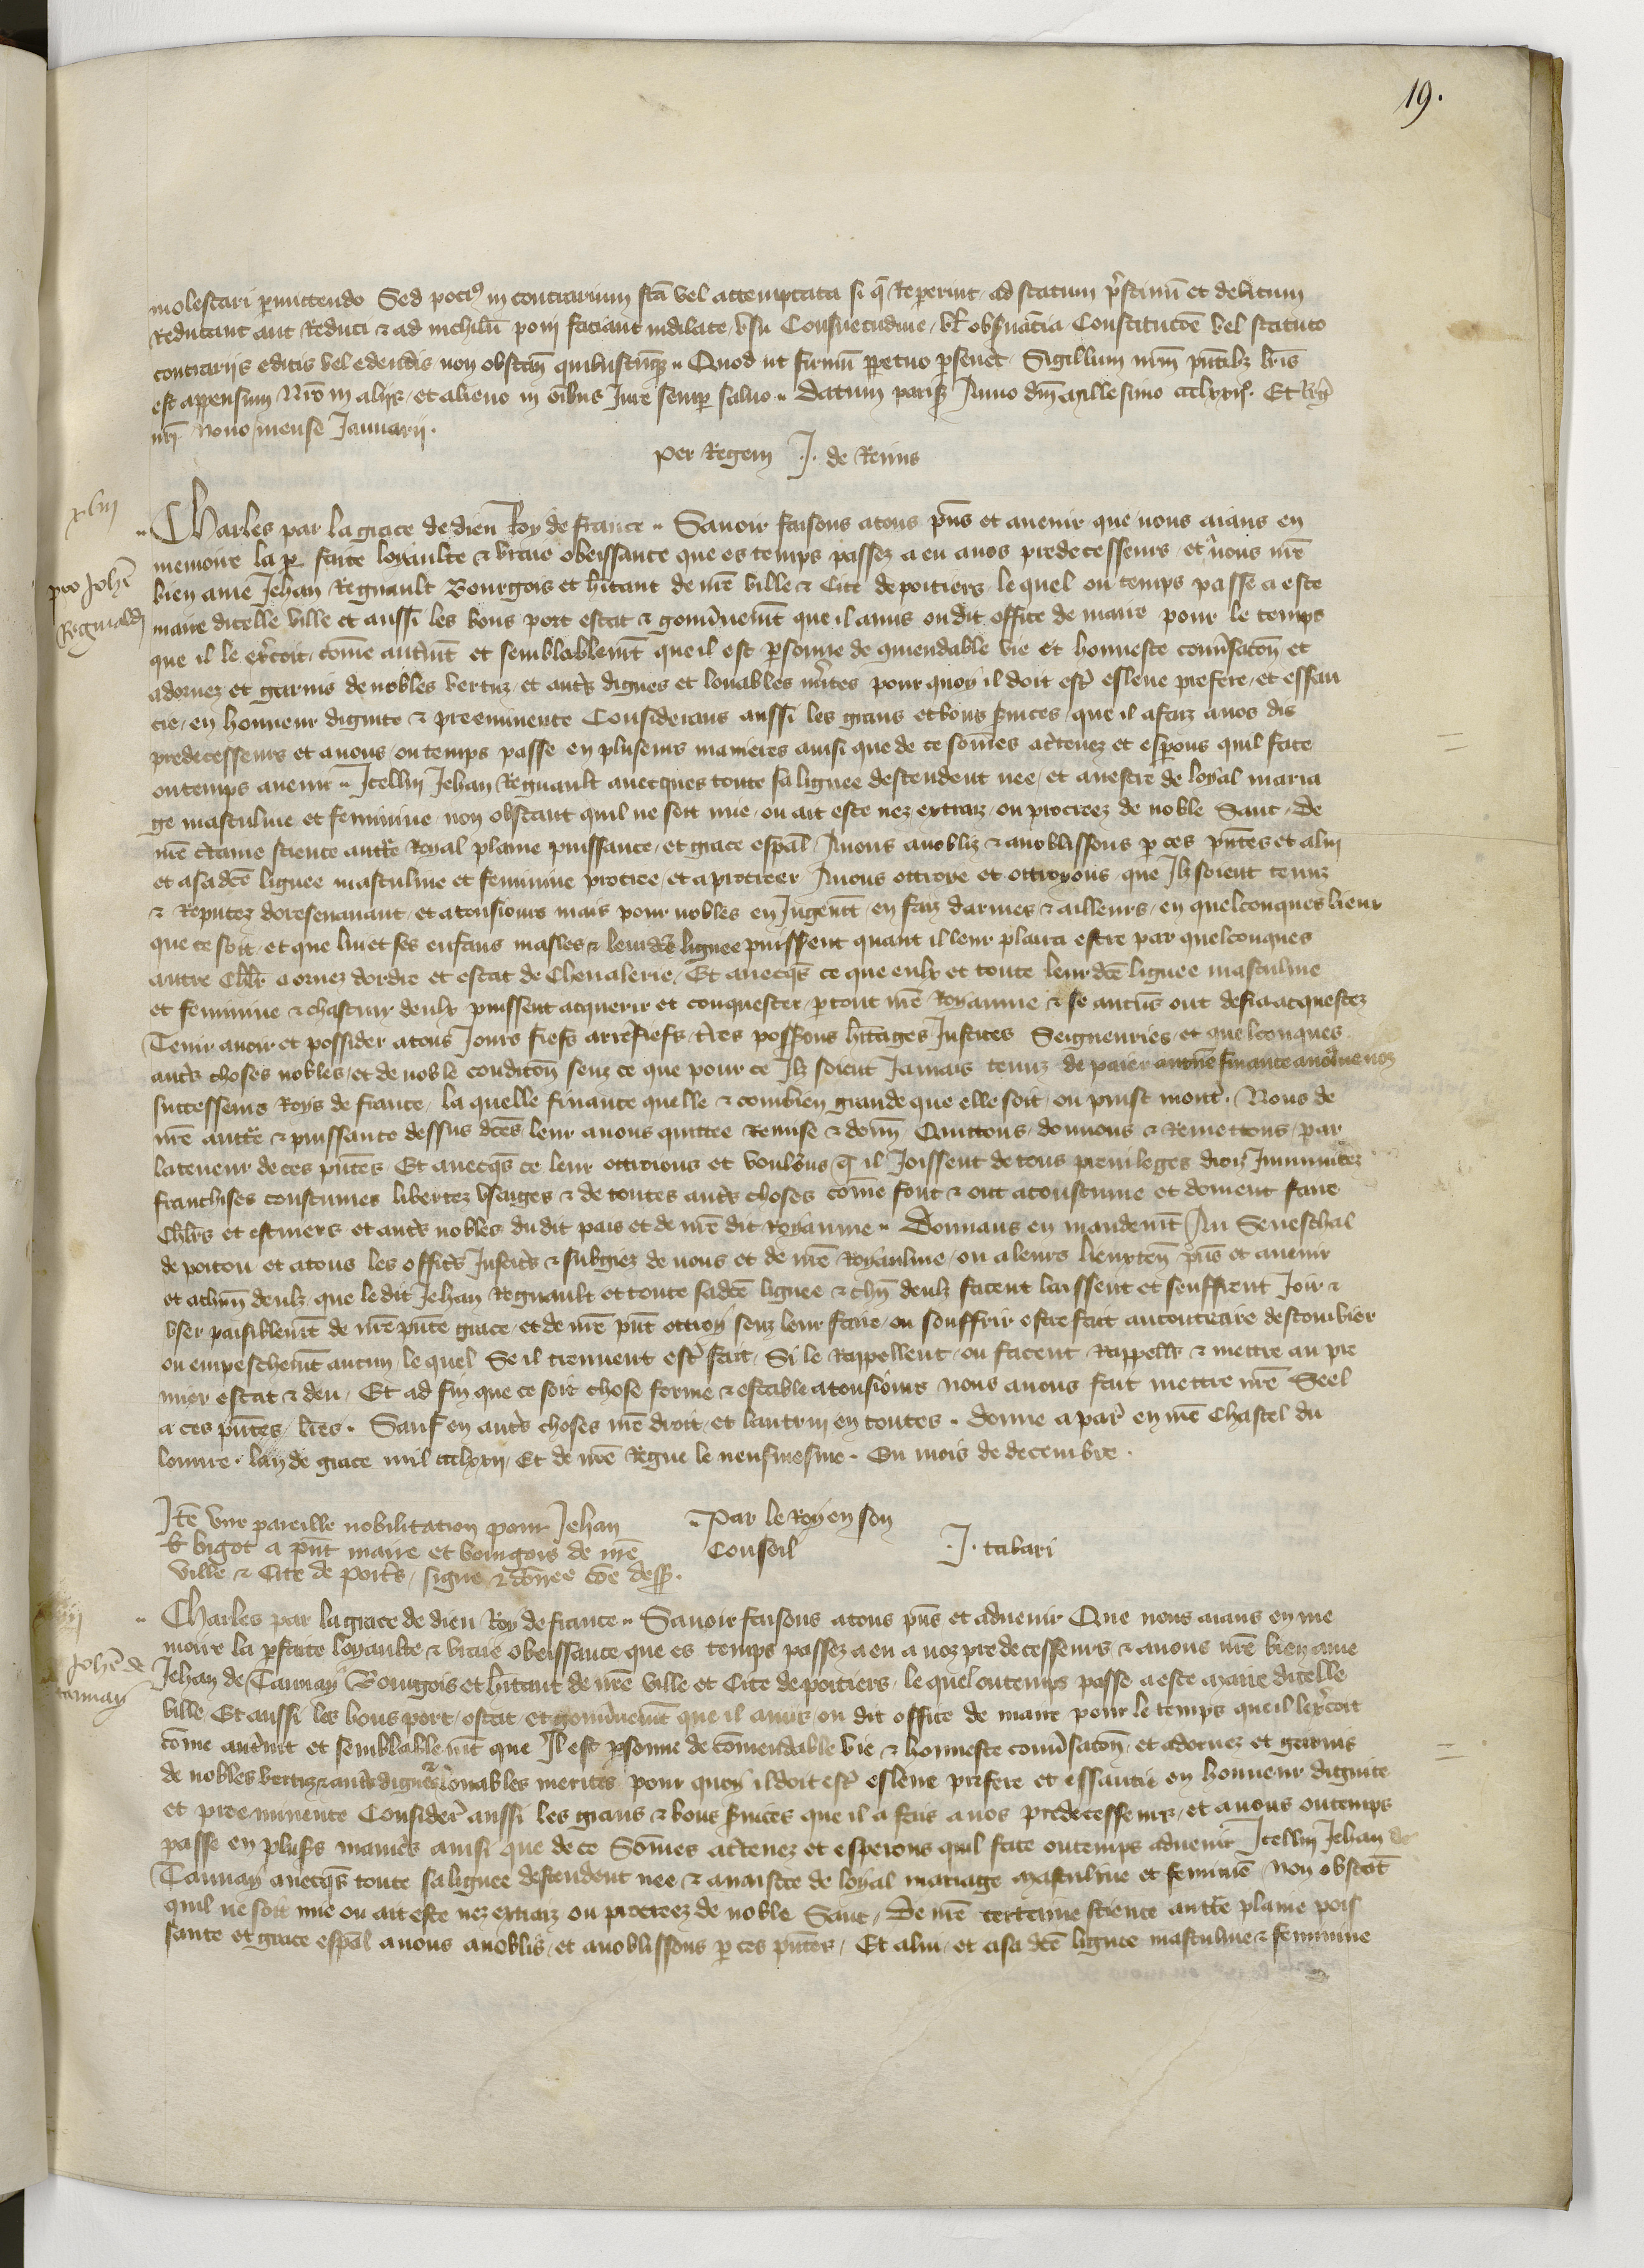 19.
molestari permittendo Sed pocius in contrarium fca vel attemptata si que Reperint ad statum pristinu et debitum
Reducant aut Reduci & ad nichilu poni faciant indilate / usu Consuetudine / vel observancia Constitucoe vel statuto
contrariis editis vel edendis non obstan quibuscumque .. Quod ut firmu perpetuo perseveret Sigillum nrm pntibz lris
est appensum / Nro in aliis / et alieno in oibus Jure semper salvo .. Datum paris Anno dni Millesimo ccclxxijo. Et Regni
nri nono mense Januarij .
Per Regem J. de Reims
xlvij
pro Johe
Reginaldi
Charles par la grace de dieu Roy de france .. Savoir faisons a tous pns et avenir que nous aians en
memoire la par faite loyaulte & vraie obeissance que es temps passez a eu a nos predecesseurs / et a nous nre
bien ame Jehan Regnault Bourgois et hitant de nre ville & Cite de poitiers / le quel ou temps passe a este
maire dicelle ville et aussi les bons port estat & gouvnemt que il a mis ou dit office de maire pour le temps
que il le exercoit / come autremt et semblablemt que il est personne de comendable vie et honneste conversacon et
adornez et garnis de nobles vertuz / et autrs dignes et louables merites pour quoy il doit estre esleve prefere / et essau
cie / en honneur dignite & preeminence Considerans aussi les grans et bons services / que il a faiz a nos dis
predecesseurs et a nous / ou temps passe en pluseurs manieres ainsi que de ce somes acertenez et esperons quil face
ou temps avenir .. Icellui Jehan Regnault avecques toute sa lignee descendent nee / et a nestre de loyal maria
ge masculine et feminine / non obstant quil ne soit mie / ou ait este nez extraiz / ou procreez de noble Sanc / De
nre ctaine science auttre Royal plaine puissance / et grace espal Avons anobliz & anoblissons par ces pntes et a lui
et a sa dce lignee masculine et feminine procree / et a procreer Avons ottroye et ottroyons que Ilz soient tenuz
& Reputez doresenavant / et a tousiours mais pour nobles en Jugemt / en faiz darmes & ailleurs / en quelconques lieux
que ce soit / et que lui et ses enfans masles & leur dce lignee puissent quant il leur plaira estre par quelconques
autre Chlr aornez dordre et estat de Chevalerie / Et avecqs ce que eulx et toute leur dce lignee masculine
et feminine & chascun deulx puissent acquerir et conquester / par tout nre Royaume & se aucuns ont desia acquestez
Tenir avoir et possider a tous Jours fiefs arrefiefs / tres possessions hitages Justices Seigneuries / et quelconques
autrs choses nobles / et de noble condicion senz ce que pour ce Ilz soient Jamais tenuz de paier aucune finance a nous ne noz
successeurs Roys de france / la quelle finance quelle & combien grande que elle soit / ou puist monter . Nous de
nre auttre & puissance dessus dces leur avons quittee Remise & donn Quittons / donnons & Remettons / par
la teneur de ces pntes Et avecqs ce leur ottroions et voulons / que il Joissent de tous previleges droiz Immunitez
franchises coustumes libertez Usaiges & de toutes autrs choses come font & ont acoustume et doivent faire
Chlrs et escuiers et autrs nobles du dit pais et de nre dit Royaume .. Donnans en mandemt / Au Seneschal
de poitou et a tous les officrs Justicrs & subgiez de nous et de nre Royaulme / ou a leurs lieuxten pns et avenir
et a chun deulx / que le dit Jehan Regnault et toute sa dce lignee & chun deulx facent laissent et seuffrent Joir &
user paisiblemt de nre pnte grace / et de nre pnt ottroy senz leur faire / ou souffrir estre fait au contraire destourbier
ou empeschemt aucun / le quel Se il treuvent estre fait / Si le Rappellent / ou facent Rappeller & mettre au pre
mier estat & deu / Et ad fin que ce soit chose ferme & estable a tousiours nous avons fait mettre nre Seel
a ces pntes / lres . Sauf en autrs choses nre droit / et lautrui en toutes . Donne a paris en nre Chastel du
louvre . lan de grace mil ccclxxij / Et de nre Regne le neufiesme . Ou mois de decembre .
Ite une pareille nobilitation pour Jehan
le bigot a pnt maire et bourgois de nre
ville & Cite de Poitrs / signe & donee coe dess .
.. Par le Roy en son
Conseil J. tabari
Johe de
tannay
.. Charles par la grace de dieu Roy de france .. Savoir faisons a tous pns et advenir Que nous aians en me
moire la perfaite loyaulte & vraie obeissance que es temps passez a eu a noz predecesseurs & a nous nre bien ame
Jehan de Tannay Bourgois et hitant de nre ville et Cite de poitiers / le quel ou temps passe a este Maire dicelle
ville Et aussi les bons port / estat / et gouvnemt que il a mis ou dit office de maire pour le temps que il lexercoit
come autremt et semblablemt que Il est personne de comendable vie & honneste conversacon / et adornez et garnis
de nobles vertuz & autrs dignes & louables merites pour quoy il doit estre esleve prefere et essaucie en honneur dignite
et preeminence Considere aussi les grans & bons services que il a fais a nos predecesseurs / et a nous ou temps
passe en plusrs manieres ainsi que de ce Somes acertenez et esperons quil face ou temps advenir Icellui Jehan de
Tannay avecqs toute sa lignee descendent nee & a naistre de loyal mariage Masculine et feminine / non obstat
quil ne soit mie ou ait este nez extraiz ou procreez de noble Sanc / De nre certaine science auttre plaine puis
sance et grace espal avons anoblis / et anoblissons par ces pntes / Et a lui / et a sa dce lignee masculine & feminine